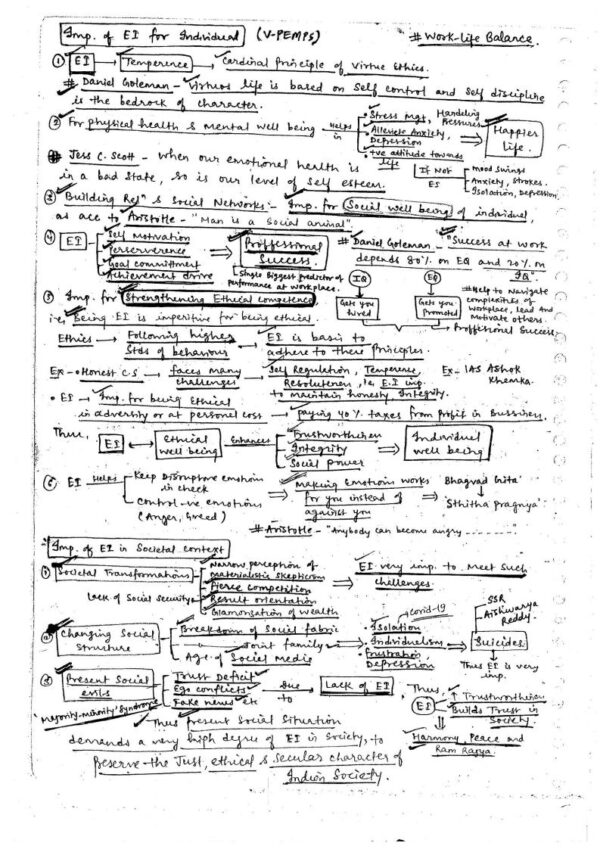 Imp. of EI for Individual (V-PEMPS)
# Work-Life Balance.
① EI → Temperence → Cardinal Principle of Virtue Ethics.
# Daniel Goleman - Virtuos life is based on self control and self discipline
is the bedrock of character.
② For physical health & Mental well being → Helps in
• Stress Mgt, Handeling Pressures
• Alleviate Anxiety,
• Depression
• +ve attitude towards life
⇒ Happier Life.
# Jess C. Scott - When our emotional health is
in a bad State, so is our level of self esteem.
If Not EI → mood swings
Anxiety, Strokes.
Isolation, Depression.
③ Building Relⁿ & Social Networks:- Imp. for Social well being of individual,
as acc to Aristotle - "Man is a Social animal"
④ EI → Self Motivation
Perserverence
Goal committment
Achievement drive
⇒ Proffessional Success.
→ Single Biggest predictor of
performance at workplace.
# Daniel Goleman - "Success at work
depends 80% on EQ and 20% on
IQ"
IQ ↓ Gets you hired
EQ ↓ Gets you Promoted
# Help to Navigate
complexities of
workplace, lead And
Motivate others.
→ Proffesional Success.
⑤ Imp. for Strengthening Ethical competence
i.e, Being EI is impetitive for being ethical.
Ethics → Following higher
Stds of behaviours → EI is basis to
adhere to these Principles.
Ex - • Honest C.S → faces many
challenges → Self Regulation, Temperence,
Resoluteness, i.e E.I imp.
to maintain honesty, Integrity.
Ex - IAS Ashok
Khemka.
• EI → Imp. for being Ethical
in adversity or at personal cost → Paying 40% taxes from Profit in Bussiness.
Thus, EI ↔ Ethical well being → Enhances
Trustworthinen
Integrity
Social power
⇒ Individual well being
⑥ EI Helps → Keep Disruptive emotions
in check
Control -ve emotions
(Anger, Greed)
⇒ Making Emotions works
for you instead of
against you
⇒ Bhagvad Gita'
↓
'Sthitha Pragnya'
# Aristotle - "Anybody can become angry --------"
Imp. of EI in Societal context
① Societal Transformations
Lack of Social Security
Narrow perception of
Materialistic Skepticism
Fierce competition
Result orientation
Glamorisation of wealth
⇒ EI very imp. to Meet Such
challenges.
② Changing Social Structure
Breakdown of Social fabric
Joint family
Age of Social Media
covid-19
• Isolation
• Individualism
• Frustration
Depression
→ Suicides
SSR
Aishwarya
Reddy.
↓
Thus EI is very
imp.
③ Present Social evils
'Majority-minority' Syndrome
Trust Deficit
Ego conflicts
Fake news etc
Due to → Lack of EI
Thus, EI → ↑ Trustworthinen
Builds Trust in
Society
⇓
Harmony, Peace and
Ram Rajya.
Thus present Social Situation
demands a very high degree of EI in Society, to
Preserve the Just, ethical & secular character of
Indian Society.